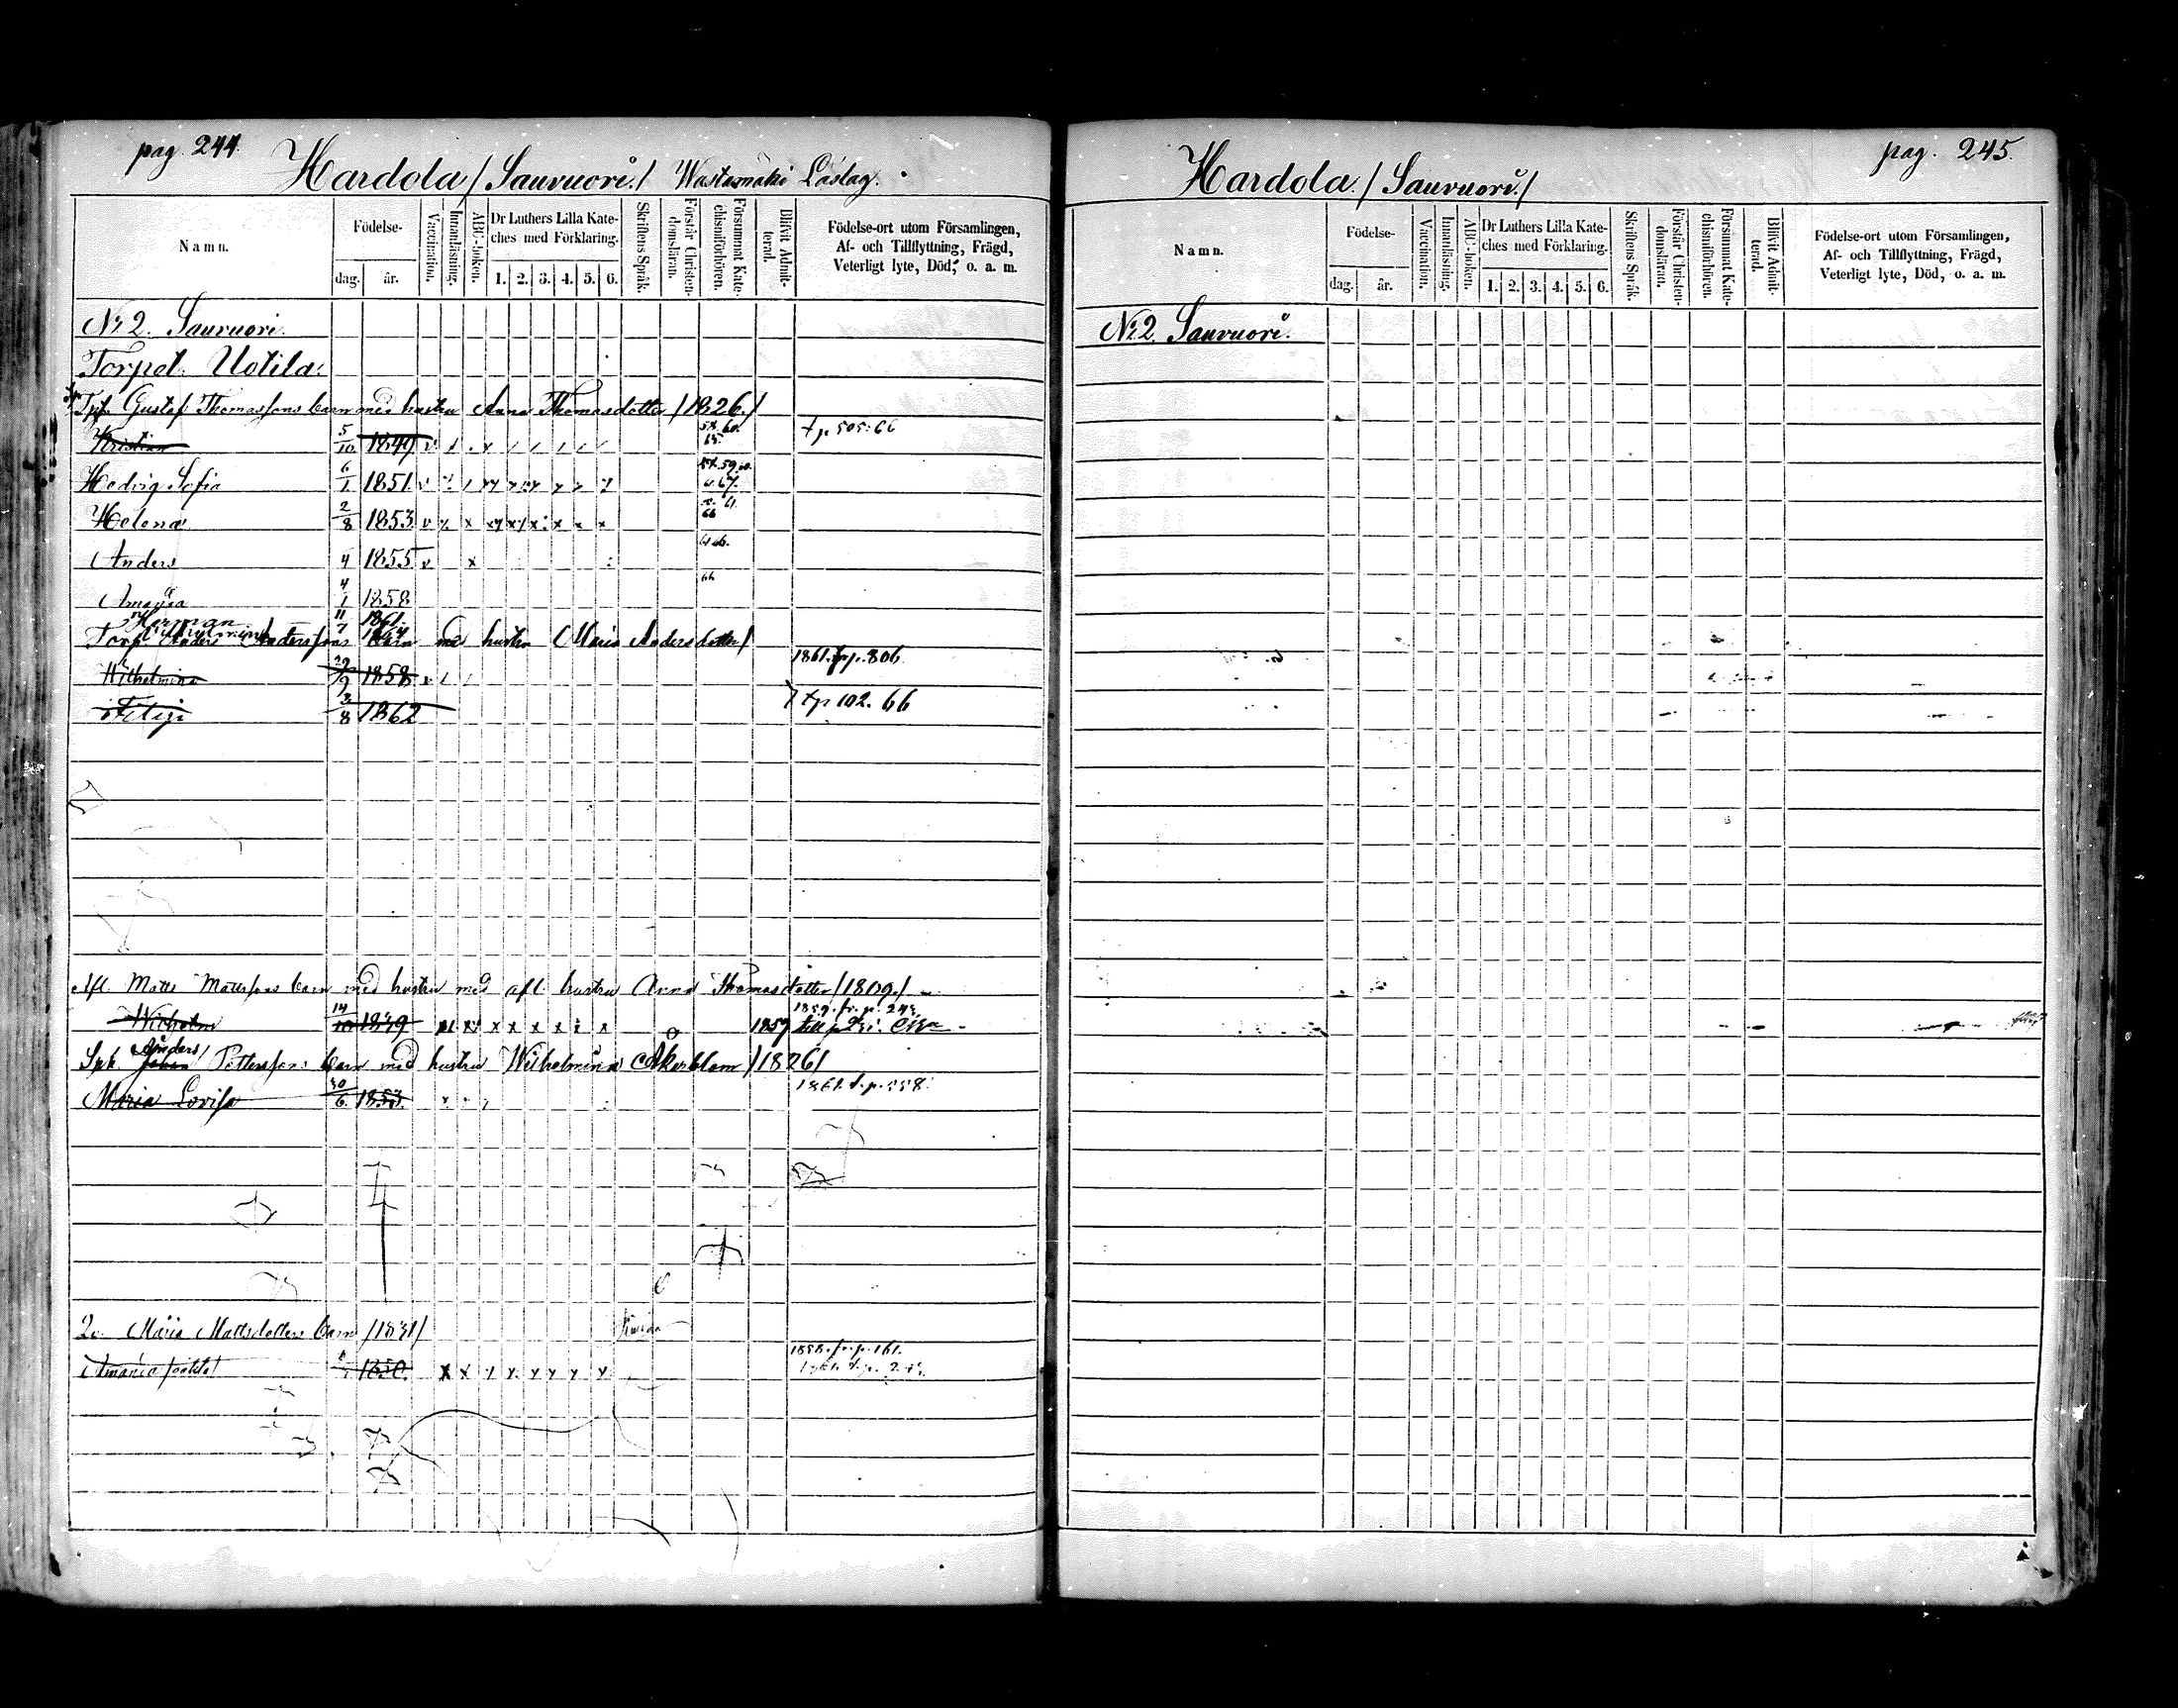 pag. 244.
Hardola / Sauvuori. / Wastamäki Läslag.
Namn.
Födelse-
dag. år.
Vaccination.
Innanläsning.
ABC-boken.
Dr Luthers Lilla Kate-
ches med Förklaring.
1. 2. 3. 4. 5. 6.
Skriftens Språk.
Förstår Christen-
domsläran.
Försummat Kate-
chismiförhören.
Blifvit Admit-
terad.
Födelse-ort utom Församlingen,
Af- och Tillflyttning, Frägd,
Veterligt lyte, Död, o. a. m.
No 2. Sauvuori.
Torpet: Uotila:
Gustaf Thomassons barn med hustru Anna Thomasdotter / 1826. /
Kristian 5/10 1849 58. 60. 65. t.p. 505. 66
Hedvig Sofia 6/1 1851 v
Helena 2/8 1853 v x x x x x 66
Anders 4 1855 v x
Amanda 4/1 1858 66
Herman 11 1861.
Vilhelmina 7 1864
Torp. Anders Anderssons barn med hustru Maria Andersdotter /
Wilhelmina 29/9 1858 v 1861. fr. p. 306
3/8 1862 t.p. 102. 66
Afl. Matts Mattssons barn med hustru med afl. hustru Anna Thomasdotter / 1809. /
Wilhelm 14/10 1839 x x x x x x 1859 1859. fr. p. 243.
Anders /
Johan Pettersons barn med hustru Wilhelmina Åkerblom / 1826 /
Maria Lovisa 30/6 1853. 1861. t. p. 558.
Maria Mattsdotters barn / 1831 /
Amanda 1850. x x 1858. fr. p. 161.
pag. 245.
Hardola. / Sauvuori. /
Namn.
Födelse-
dag. år.
Vaccination.
Innanläsning.
ABC-boken.
Dr Luthers Lilla Kate-
ches med Förklaring.
1. 2. 3. 4. 5. 6.
Skriftens Språk.
Förstår Christen-
domsläran.
Försummat Kate-
chismiförhören.
Blifvit Admit-
terad.
Födelse-ort utom Församlingen,
Af- och Tillflyttning, Frägd,
Veterligt lyte, Död, o. a. m.
No 2. Sauvuori.